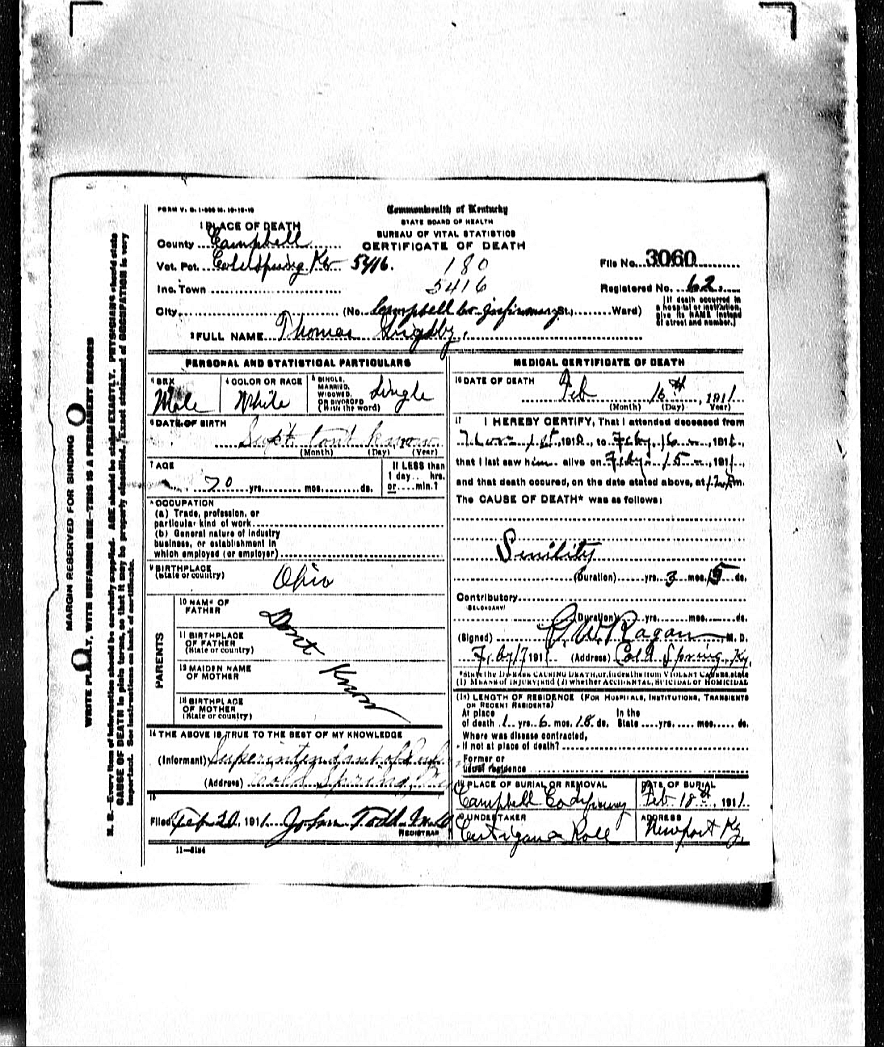 FORM V. S. 1-
Commonwealth of Kentucky
STATE BOARD OF HEALTH
BUREAU OF VITAL STATISTICS
CERTIFICATE OF DEATH
1 PLACE OF DEATH
County Campbell
Vot. Pct. Coldspring Ky 5416.
180
5416
File No. 3060
Inc. Town
Registered No. 62.
City (No. Campbell Co. Infirmary St.; Ward)
[If death occurred in a hospital or institution, give its NAME instead of street and number.]
2 FULL NAME Thomas
PERSONAL AND STATISTICAL PARTICULARS
3 SEX Male
4 COLOR OR RACE White
5 SINGLE, MARRIED, WIDOWED, OR DIVORCED (Write the word) Single
6 DATE OF BIRTH
(Month) (Day) (Year)
7 AGE 70 yrs. mos. ds.
If LESS than 1 day hrs. or min.?
8 OCCUPATION
(a) Trade, profession, or
particular kind of work
(b) General nature of industry
business, or establishment in
which employed (or employer)
9 BIRTHPLACE
(State or country) Ohio
PARENTS
10 NAME OF FATHER
11 BIRTHPLACE OF FATHER (State or country)
12 MAIDEN NAME OF MOTHER
13 BIRTHPLACE OF MOTHER (State or country)
Dont Know
14 THE ABOVE IS TRUE TO THE BEST OF MY KNOWLEDGE
(Informant) Superintendant of
(Address) Cold Spring, Ky
15
Filed Feb 20 1911 John Todd M D
REGISTRAR
11-3184
MEDICAL CERTIFICATE OF DEATH
16 DATE OF DEATH Feb 16th, 1911
(Month) (Day) Year)
17 I HEREBY CERTIFY, That I attended deceased from
1st 1910, to Feby. 16 1911,
that I last saw him alive on Feby. 15, 1911,
and that death occured, on the date stated above, at m.
The CAUSE OF DEATH* was as follows:
Senility
(Duration) yrs. 3 mos. 15 ds.
Contributory
SECONDARY
(Duration) yrs. mos. ds.
(Signed) Ragan M. D.
Feby 17 1911 (Address) Cold Spring, Ky.
*State the DISEASE CAUSING DEATH, or, in deaths from VIOLENT CAUSES, state
(1) MEANS OF INJURY; and (2) whether ACCIDENTAL, SUICIDAL or HOMICIDAL
18 LENGTH OF RESIDENCE (FOR HOSPITALS, INSTITUTIONS, TRANSIENTS
OR RECENT RESIDENTS)
At place of death 1 yrs. 6 mos. 18 ds. In the State yrs. mos. ds.
Where was disease contracted,
if not at place of death?
Former or
usual residence
19 PLACE OF BURIAL OR REMOVAL
Campbell Co
DATE OF BURIAL
Feb 18th, 1911
20 UNDERTAKER
ADDRESS
Newport Ky
MARGIN RESERVED FOR BINDING
WRITE PLAINLY, WITH UNFADING INK—THIS IS A PERMANENT RECORD
N. B.—Every item of information should be carefully supplied. AGE should be stated EXACTLY. PHYSICIANS should state
CAUSE OF DEATH in plain terms, so that it may be properly classified. Exact statement of OCCUPATION is very
important. See instructions on back of certificate.